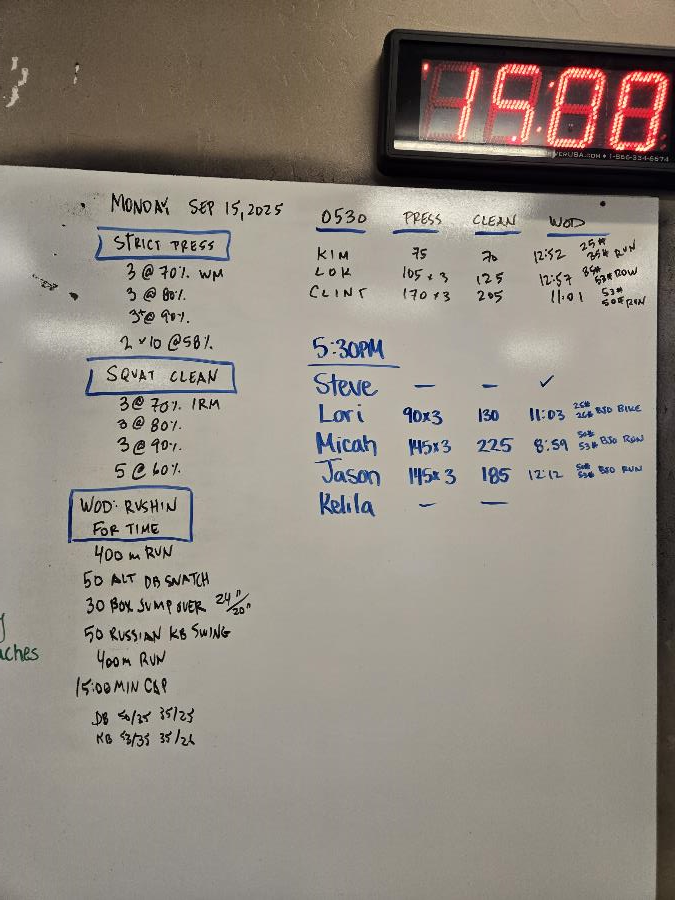 15:00
VERUSA.COM • 1-866-334-6674
MONDAY SEP 15, 2025
STRICT PRESS
3 @ 70% WM
3 @ 80%
3+@ 90%
2 x 10 @ 58%
SQUAT CLEAN
3 @ 70% 1RM
3 @ 80%
3 @ 90%
5 @ 60%
WOD: RUSHIN
FOR TIME
400 m RUN
50 ALT DB SNATCH
30 BOX JUMP OVER 24"/20"
50 RUSSIAN KB SWING
400m RUN
15:00 MIN CAP
DB 50/35 35/25
KB 53/35 35/26
0530 PRESS CLEAN WOD
KIM 75 70 12:52 25# 35# RUN
LOK 105 x 3 125 12:57 35# 53# ROW
CLINT 170 x3 205 11:01 53# 50# RUN
5:30PM
Steve — — ✓
Lori 90x3 130 11:03 25# 26# BJO BIKE
Micah 145x3 225 8:59 50# 53# BJO RUN
Jason 145x3 185 12:12 50# 53# BJO RUN
Kelila — —
aches